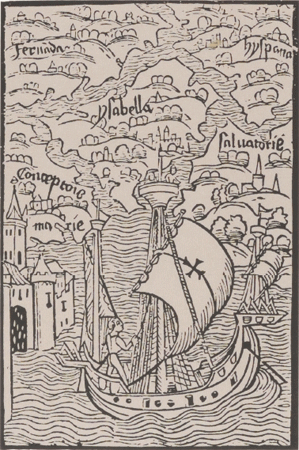 Fernada
hyspana
ysabella
saluatorie
Conceptoie
marie